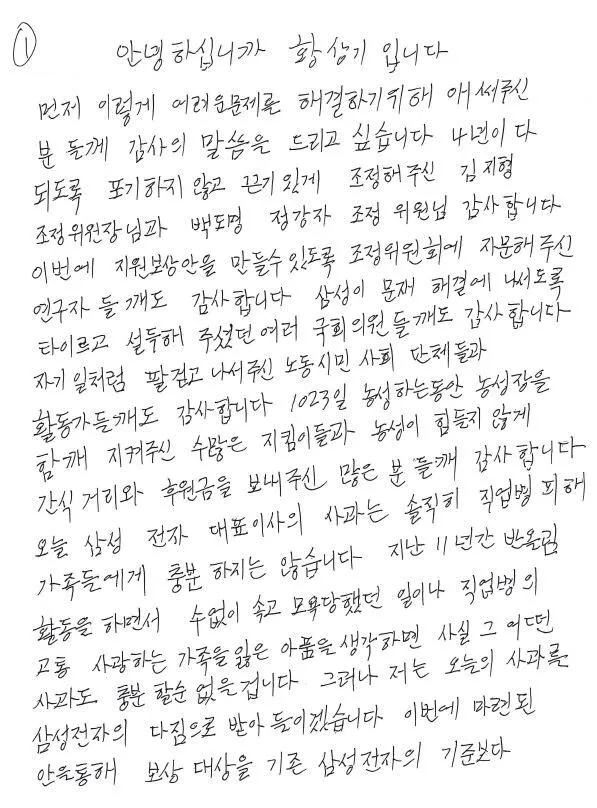 ①
안녕하십니까 황상기 입니다
먼저 이렇게 어려운문제를 해결하기위해 애써주신
분 들께 감사의 말씀을 드리고 싶습니다 4년이 다
되도록 포기하지 않고 끈기있게 조정해주신 김지형
조정위원장님과 백도명 정강자 조정 위원님 감사합니다
이번에 지원보상안을 만들수있도록 조정위원회에 자문해주신
연구자 들깨도 감사합니다 삼성이 문재 해결에 나서도록
타이르고 설득해 주셨던 여러 국회의원 들깨도 감사합니다
자기일처럼 팔걷고 나서주신 노동시민 사회 단체들과
활동가들깨도 감사합니다 1023일 농성하는동안 농성장을
함깨 지켜주신 수많은 지킴이들과 농성이 힘들지 않게
간식거리와 후원금을 보내주신 많은 분 들깨 감사합니다
오늘 삼성 전자 대표이사의 사과는 솔직히 직업병 피해
가족들에게 충분 하지는 않습니다 지난 11년간 반올림
활동을 하면서 수없이 속고 모욕당했던 일이나 직업병의
고통 사랑하는 가족을 잃은 아품을 생각하면 사실 그 어떤
사과도 충분 할순 없을겁니다 그러나 저는 오늘의 사과를
삼성전자의 다짐으로 받아 들이겠습니다 이번에 마련된
안을통해 보상 대상을 기존 삼성전자의 기준보다